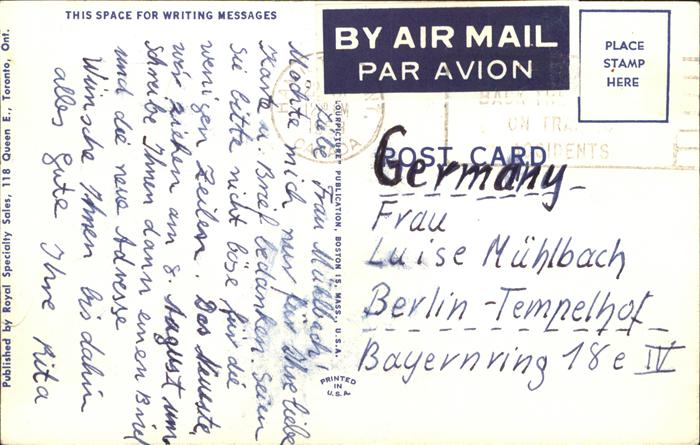 THIS SPACE FOR WRITING MESSAGES
Liebe Frau Mühlbach,
Möchte mich nur für Ihre liebe
Karte u. Brief bedanken. Seien
Sie bitte nicht böse für die
wenigen Zeilen. Das Neueste,
wir ziehen am 8. August um
Schreibe Ihnen dann einen Brief
und die neue Adresse
Wünsche Ihnen bis dahin
alles Gute Ihre Rita
Published by Royal Specialty Sales, 118 Queen E., Toronto, Ont.
COLOURPICTURE PUBLICATION, BOSTON 15, MASS., U.S.A.
PRINTED
IN
U.S.A.
BY AIR MAIL
PAR AVION
PLACE
STAMP
HERE
CANADA
BACK THE
ON TRAFFIC
ACCIDENTS
POST CARD
Germany
Frau
Luise Mühlbach
Berlin-Tempelhof
Bayernring 18e IV